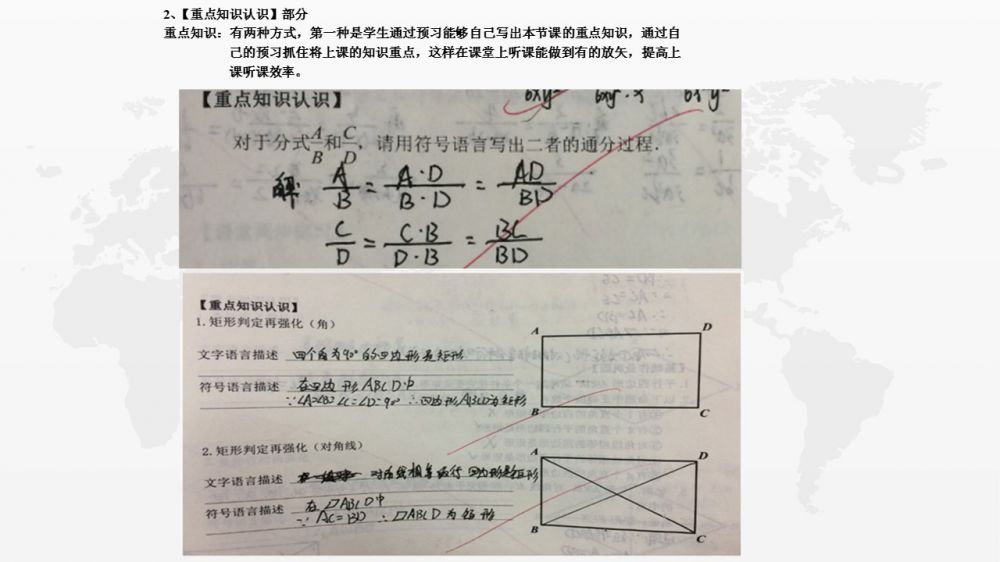 2、【重点知识认识】部分
重点知识：有两种方式，第一种是学生通过预习能够自己写出本节课的重点知识，通过自
己的预习抓住将上课的知识重点，这样在课堂上听课能做到有的放矢，提高上
课听课效率。
【重点知识认识】
对于分式 A/B 和 C/D，请用符号语言写出二者的通分过程.
解: A/B = A·D/B·D = AD/BD
C/D = C·B/D·B = BC/BD
【重点知识认识】
1.矩形判定再强化（角）
文字语言描述 四个角为90°的四边形是矩形
符号语言描述 在四边形ABCD中
∵∠A=∠B=∠C=∠D=90° ∴四边形ABCD为矩形
A D
B C
2.矩形判定再强化（对角线）
文字语言描述 对角线相等的平行四边形是矩形
符号语言描述 在▱ABCD中
∵AC=BD ∴▱ABCD为矩形
A D
B C